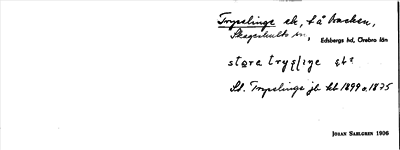 Trysslinge ek, få backen,
Skagershults sn, Edsbergs hd, Örebro län
stǫra trysliŋe
St. Trysslinge jb kb 1899 o. 1875
JOHAN SAHLGREN 1906